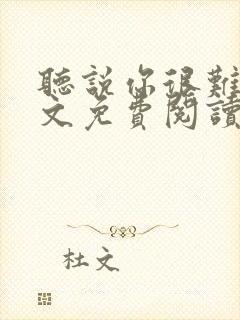 聽說你很難
文免費閱讀
杜文